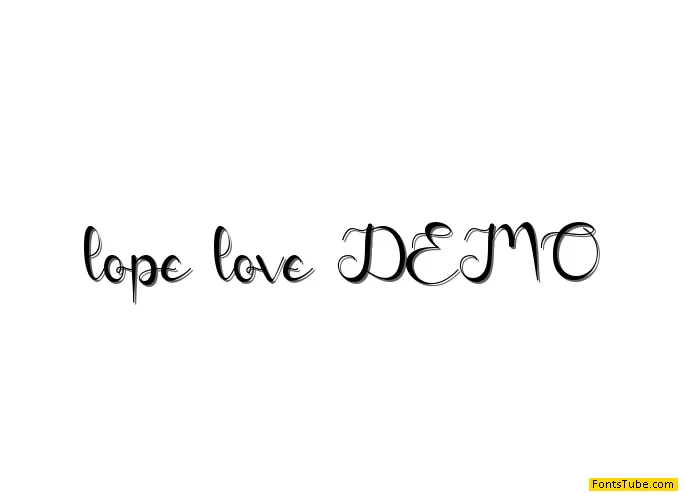 lope love DEMO
FontsTube.com